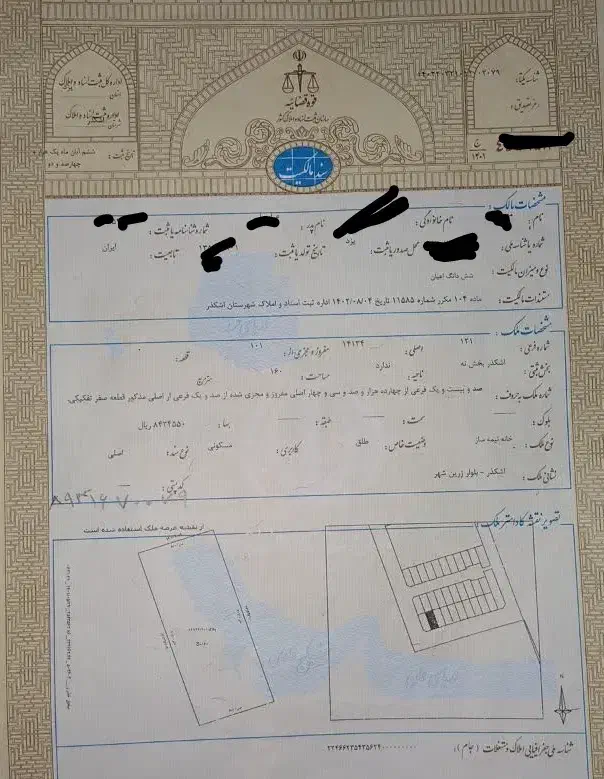 اداره کل ثبت اسناد و املاک
استان
اداره ثبت اسناد و املاک
شهرستان
قوه قضائیه
سازمان ثبت اسناد و املاک کشور
سند مالکیت
شناسه یکتا :
رمز تصدیق :
ج
۱۴۰۱
تاریخ ثبت : ششم آبان ماه یک هزار و
چهارصد و دو
مشخصات مالک :
نام : نام خانوادگی : نام پدر : شماره شناسنامه یا ثبت :
شماره یا شناسه ملی : محل صدور یا ثبت : یزد تاریخ تولد یا ثبت : تابعیت : ایران
نوع و میزان مالکیت : شش دانگ اعیان
مستندات مالکیت : ماده ۱۰۴ مکرر شماره 11585 تاریخ ۱۴۰۲/۰۸/۰۴ اداره ثبت اسناد و املاک شهرستان اشکذر
مشخصات ملک :
شماره فرعی : ۱۲۱ اصلی : ۱۴۱۳۴ مفروز و مجزی از : ۱۰۱ قطعه :
بخش ثبتی : اشکذر بخش نه ناحیه : ندارد مساحت : ۱۶۰ مترمربع
شماره ملک به حروف : صد و بیست و یک فرعی از چهارده هزار و صد و سی و چهار اصلی مفروز و مجزی شده از صد و یک فرعی از اصلی مذکور قطعه صفر تفکیکی.
بلوک : سمت : طبقه : بها : ۸۴۲۴۵۵۰ ریال
نوع ملک : خانه نیمه ساز وضعیت خاص : طلق کاربری : مسکونی نوع سند : اصلی
نشانی ملک : اشکذر - بلوار زرین شهر کدپستی :
تصویر نقشه کاداستر ملک :
از بقیه عرصه ملک استفاده شده است
N
شناسه ملی جغرافیایی املاک و مستغلات (جام) :